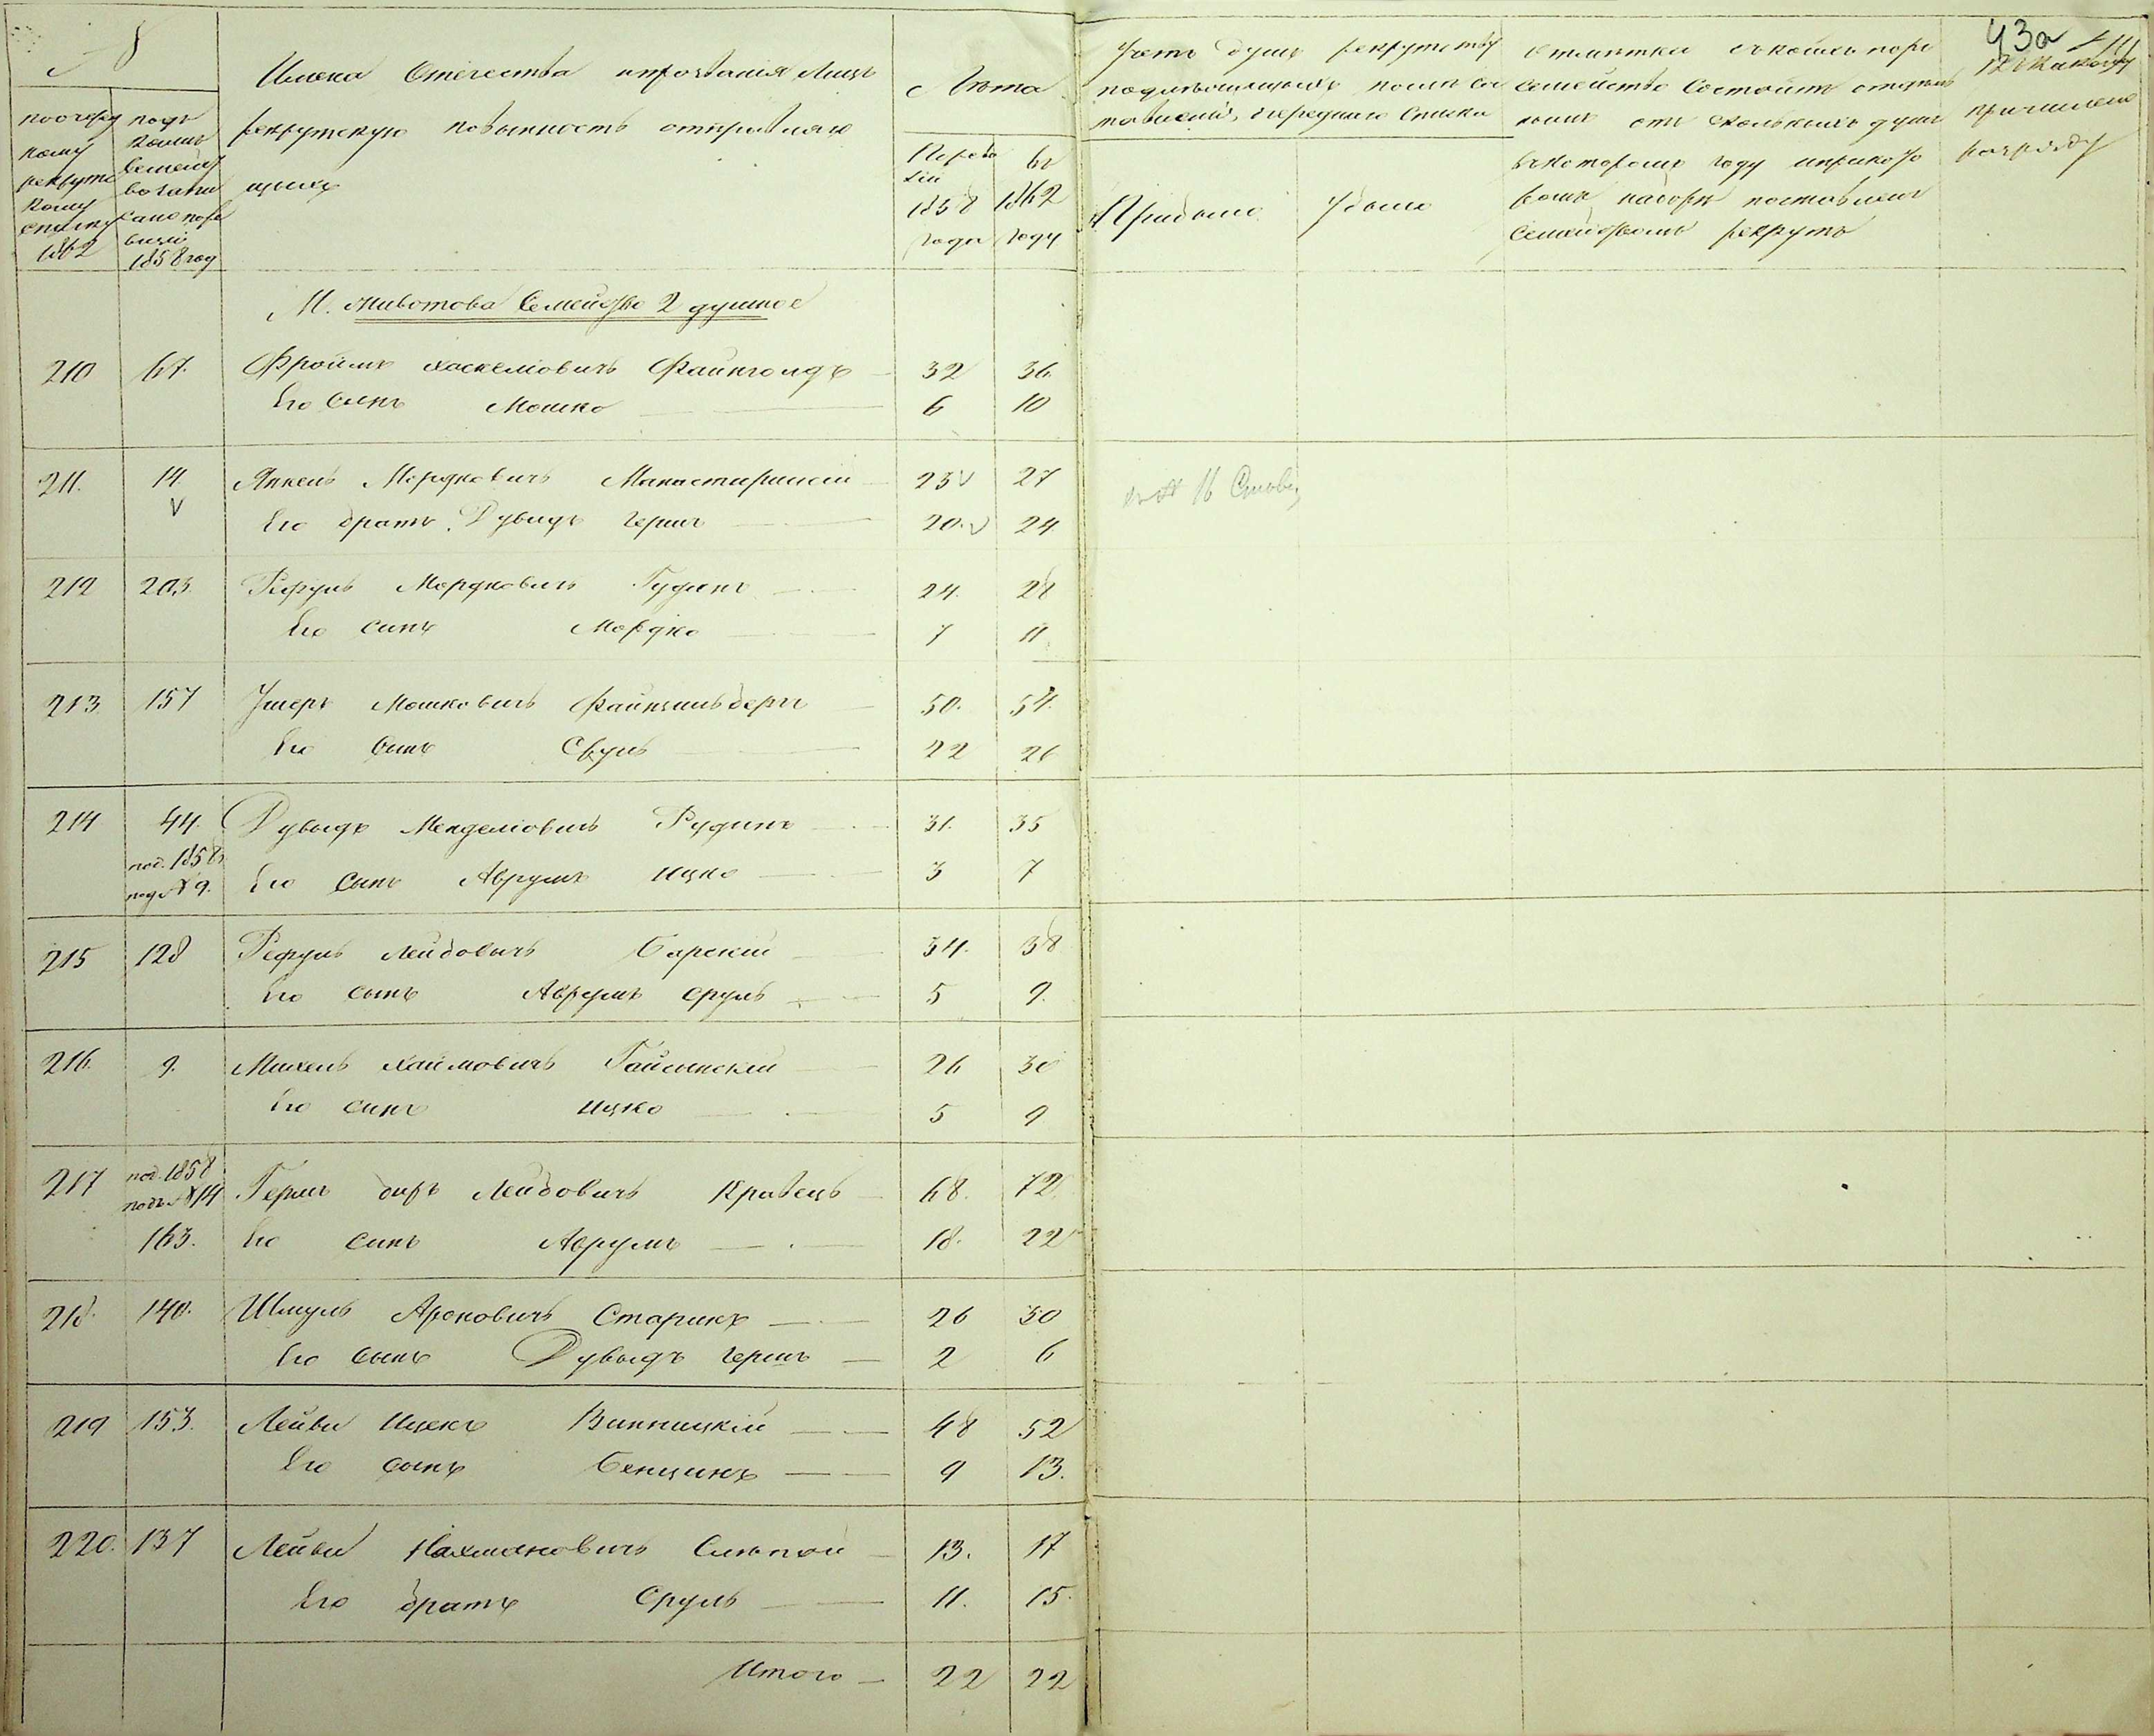 №
по очеред
ному
рекрутс
кому
списку
1862
подъ
коимъ
семейс
во запи
сано по ре
визіи
1858 год
Имена Отечества и прозванія Лицъ
рекрутскую повынность отправляю
щихъ
Лѣта
По рево
зіи
1858
года
въ
1862
году
Учетъ душъ рекрутству
подлѣжащихъ послѣ сос
тавленія очереднаго списка
Прибыло
Убыло
Отмѣтки въ коемъ
семейство состоитъ
отъ сколькихъ душъ
въ которомъ году и при како
вомъ наборѣ поставленъ
семействомъ рекрутъ
43а
Къ какому
причислено
разряду
М. Животова Семейство 2 душное
210 67. Фроимъ Хаскеліовичъ Файнголдъ 32 36.
Его сынъ Мошко 6 10
211. 14. Янкель Мордковичъ Манастирскій 23 v 27
v Его братъ Дувидъ Гершъ 20. v 24
въ № 16
212 203. Рефулъ Мордковичъ Гудинъ 24. 28
Его сынъ Мордко 7 11
213 157 Ушеръ Мошковичъ Файнцильбергъ 50. 54.
Его сынъ Сруль 22 26
214 44. Дувыдъ Менделіовичъ Рудинъ 31. 35
под. 1858
под № 9. Его Сынъ Аврумъ Ицко 3 7
215 128 Рефулъ Лейбовичъ Барскій 34. 38
Его сынъ Аврумъ Сруль 5 9.
216. 9. Михель Хаимовичъ Гайсинскій 26 30
Его сынъ Ицко 5 9
217 под. 1858
подъ № 14 Гершъ Беръ Лейбовичъ Кравець 68. 72.
163. Его сынъ Аврумъ 18. 22
218. 140. Шмуль Ароновичъ Старикъ 26 30
Его сынъ Дувыдъ Гершъ 2 6
219 153. Лейви Ицекъ Винницкій 48 52
Его сынъ Бенционъ 9 13.
220. 137 Лейви Нахмановичъ Слѣпой 13. 17
Его братъ Сруль 11. 15.
Итого 22 22